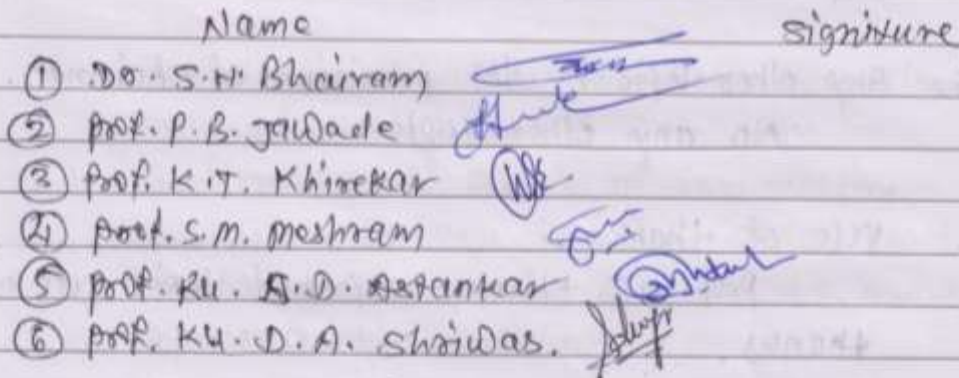 Name signiture
① Dr. S.H Bhairam
② prof. P.B. Jawade
③ Prof. K.T. Khirekar
④ prof. S.M. meshram
⑤ prof. Ku. A.D. Astankar
⑥ prof. Ku. D.A. Shriwas.